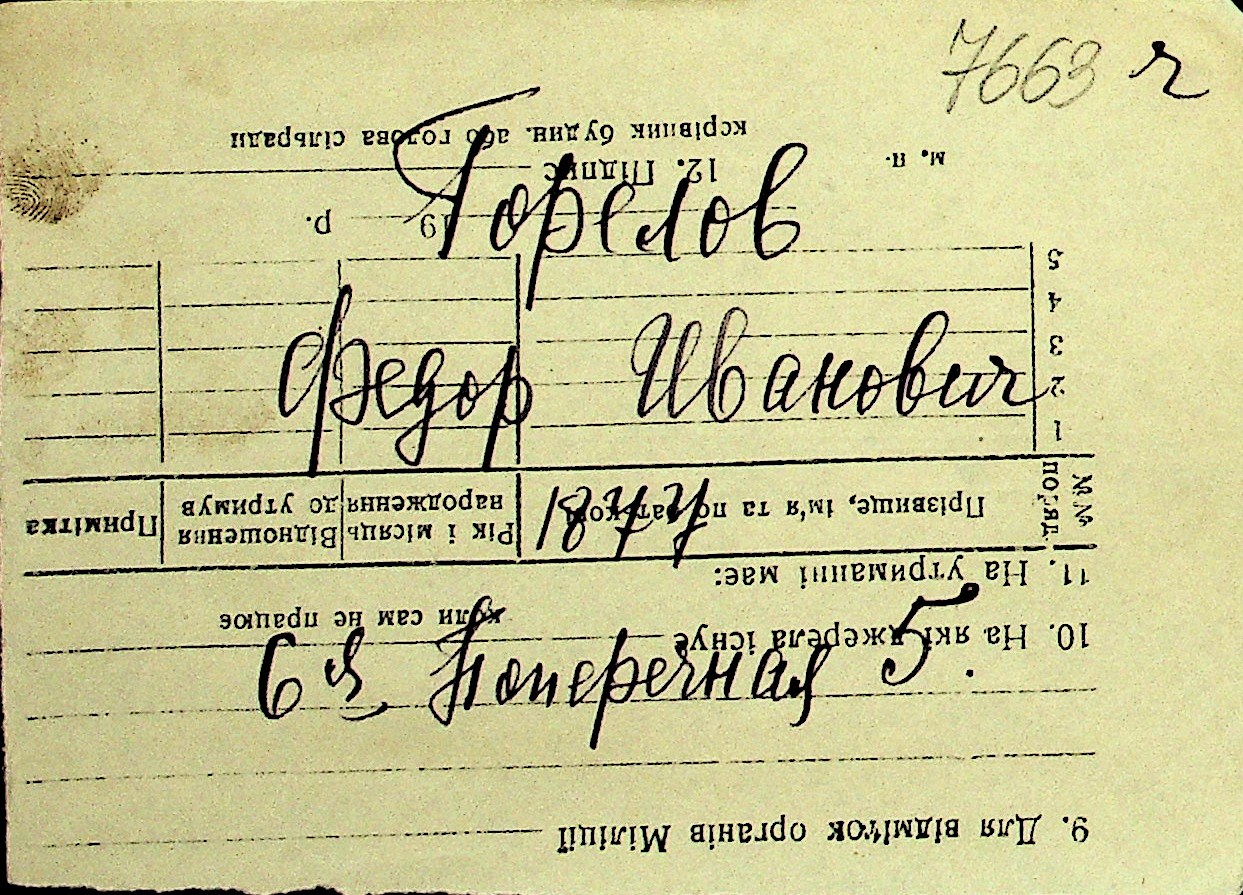 7663 г
Горелов
Федор Иванович
1877
6я Поперечная 5.
9. Для відміток органів Міліції
10. На які джерела існує
коли сам не працює
11. На утриманні має:
№№ поряд. Прізвище, ім'я та по батькові Рік і місяць народження Відношення до утримув Примітка
1
2
3
4
5
19 р.
м. п. 12. Підпис
керівник будин. або голова сільради